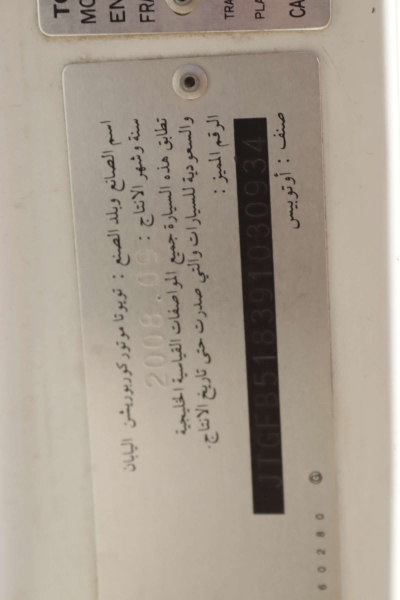 TO
MO
EN
FRA
TRA
PLA
CA
اسم الصانع وبلد الصنع : تويوتا موتور كوربوريشن اليابان
سنة وشهر الانتاج : 2008.05
تطابق هذه السيارة جميع المواصفات القياسية الخليجية
والسعودية للسيارات والتي صدرت حتى تاريخ الانتاج.
الرقم المميز :
JTGFB518391030934
صنف : أوتوبيس
60280